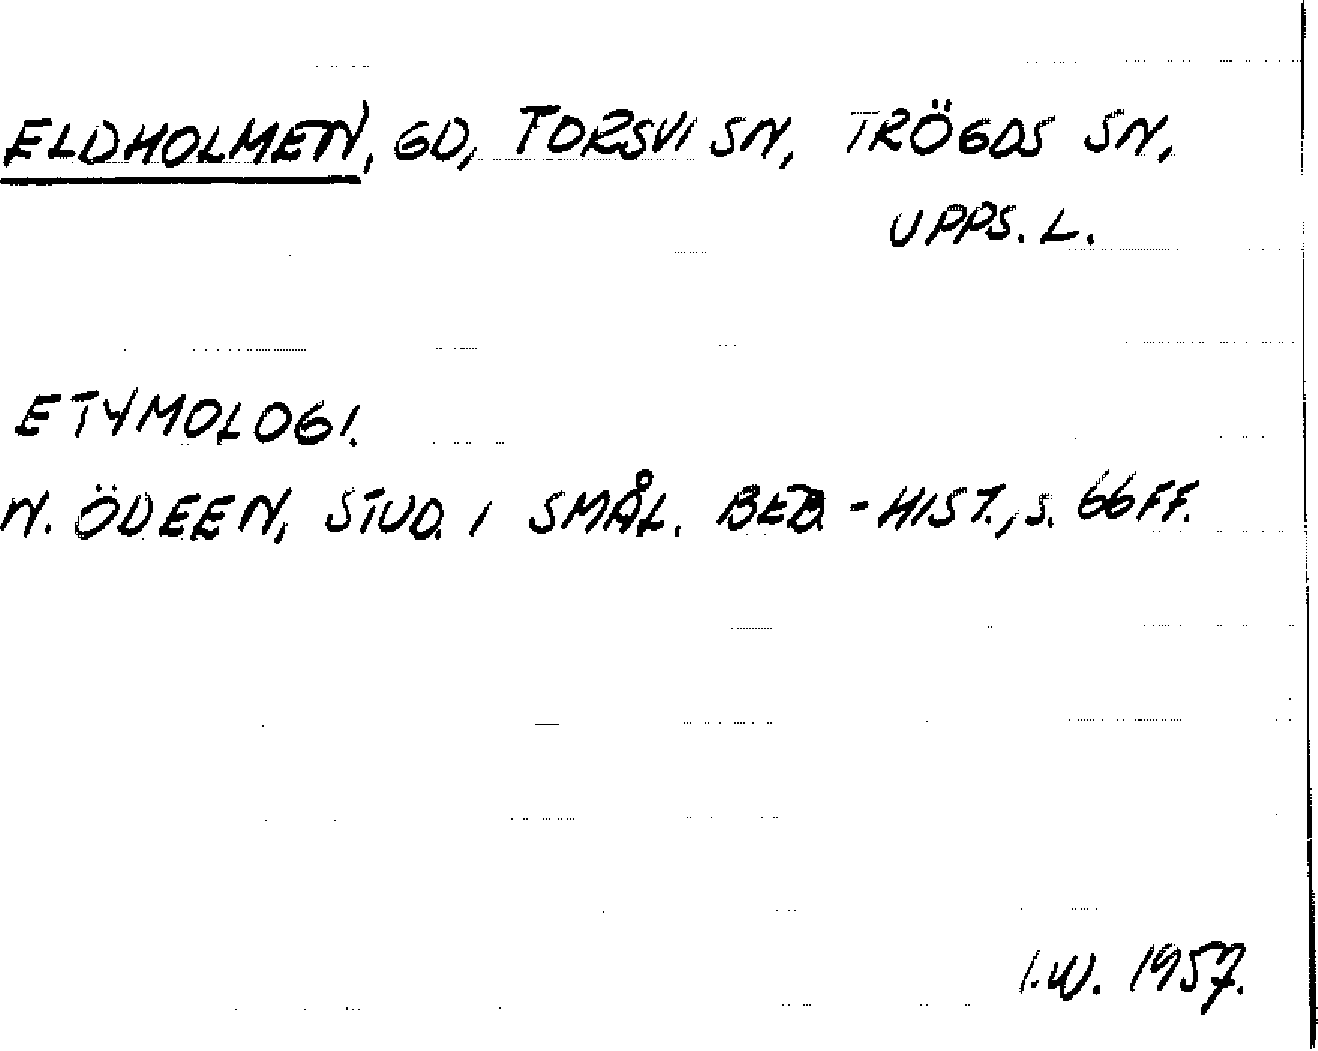 ELDHOLMEN, GD, TORSVI SN, TRÖGDS SN,
UPPS. L.
ETYMOLOGI.
N. ÖDEEN, STUD. I SMÅL. BEB.-HIST., S. 66FF.
I.W. 1957.